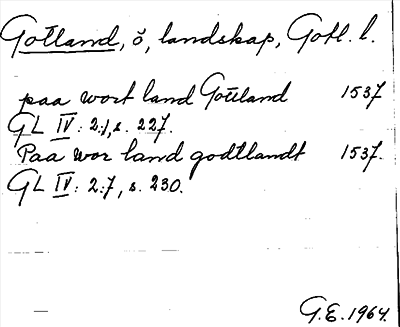 Gotland, ö, landskap, Gotl. l.
paa wort land Gottland 1537
GL IV: 2:1, s. 227.
Paa wor land godtlandt 1537.
GL IV: 2:7, s. 230.
G.E. 1964.